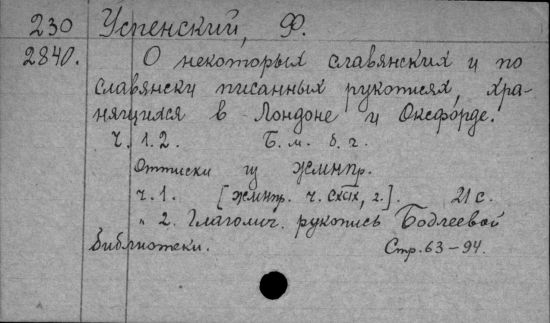 230 Успенский, Ф.
2840. О некоторых славянских и по
славянски писанных рукописях, хра-
нящихся в Лондоне и Оксфорде.
Ч. 1. 2. Б. м. б. г.
Оттиски из ЖМНПр.
ч. 1. [ЖМНПр. ч. CXCIX, 2.]. 21 с.
" 2. Глаголич. рукопись Бодлеевой
библиотеки. Стр. 63-94.